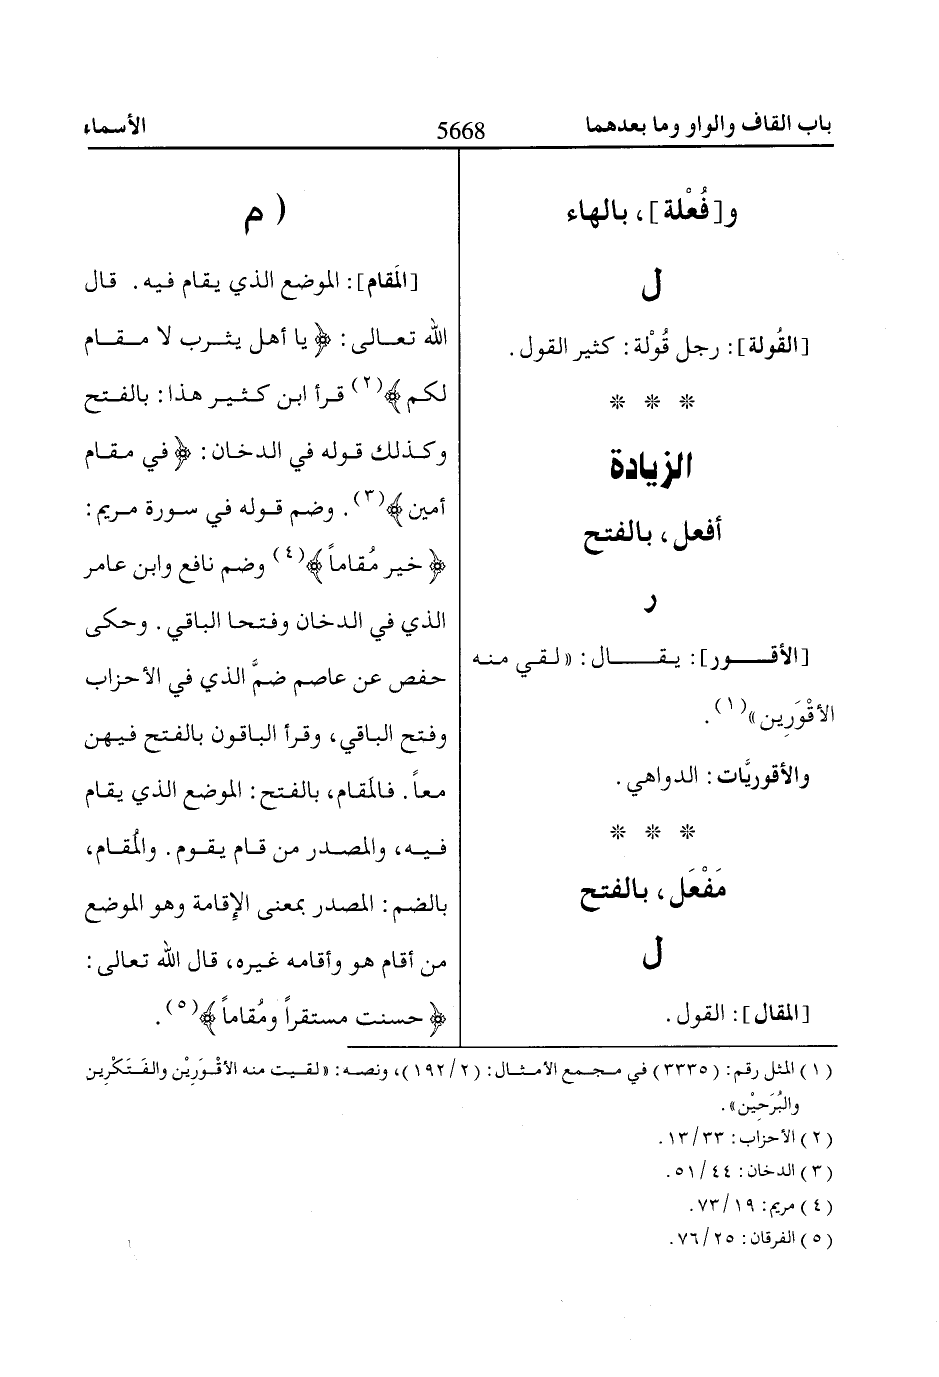 باب القاف والواو وما بعدهما
5668
الأسماء
و[فُعْلة]، بالهاء
ل
[القُولة]: رجل قُوْلة: كثير القول.
* * *
الزيادة
أفعل، بالفتح
ر
[الأقـور]: يقـال: «لقي منه
الأقْوَرِين»(١).
والأقوريَّات: الدواهي.
* * *
مَفْعَل، بالفتح
ل
[المقال]: القول.
( م
[المَقام]: الموضع الذي يقام فيه. قال
الله تعالى: ﴿يا أهل يثرب لا مقام
لكم﴾(٢) قرأ ابن كثير هذا: بالفتح
وكذلك قوله في الدخان: ﴿في مقام
أمين﴾(٣). وضم قوله في سورة مريم:
﴿خير مُقاماً﴾(٤) وضم نافع وابن عامر
الذي في الدخان وفتحا الباقي. وحكى
حفص عن عاصم ضمَّ الذي في الأحزاب
وفتح الباقي، وقرأ الباقون بالفتح فيهن
معاً. فالمَقام، بالفتح: الموضع الذي يقام
فيه، والمصدر من قام يقوم. والمُقام،
بالضم: المصدر بمعنى الإقامة وهو الموضع
من أقام هو وأقامه غيره، قال الله تعالى:
﴿حسنت مستقراً ومُقاماً﴾(٥).
(١) المثل رقم: (٣٣٣٥) في مجمع الأمثال: (١٩٢/٢)، ونصه: «لقيت منه الأقْوَرِيْن والفَتَكْرِين
والبُرَحِيْن».
(٢) الأحزاب: ١٣/٣٣.
(٣) الدخان: ٥١/٤٤.
(٤) مريم: ٧٣/١٩.
(٥) الفرقان: ٧٦/٢٥.